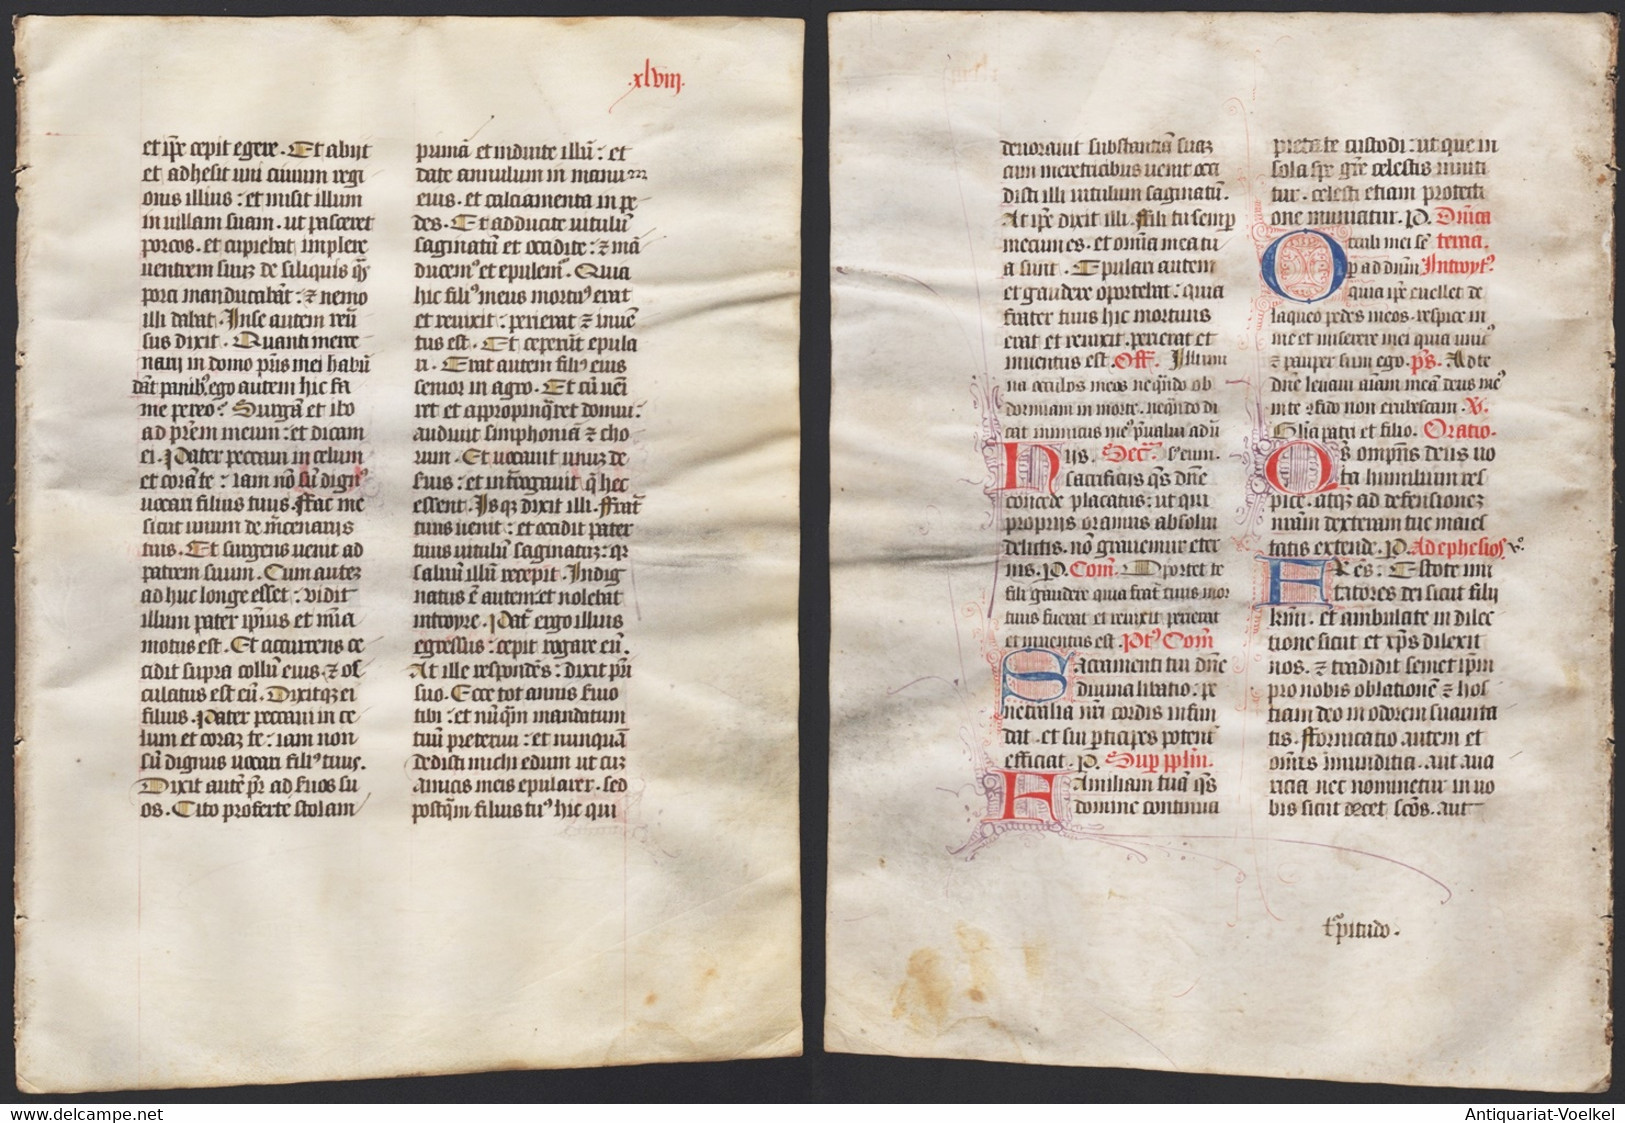 .xlviij.
et ip̄e cepit egere. Et abijt
et adhesit uni ciuium regi
onis illius: et misit illum
in uillam suam. ut pasceret
porcos. et cupiebat implere
uentrem suuꝫ de siliquis q̄s
porci manducabāt: ⁊ nemo
illi dabat. In se autem reū
sus dixit. Quanti merce
narij in domo pr̄is mei habū
dāt panibꝰ. ego autem hic fa
me pereo? Surgā et ibo
ad pr̄em meum: et dicam
ei. Pater peccaui in celum
et corā te: iam nō sū dignꝰ
uocari filius tuus. ffac me
sicut unum de m̄cenarijs
tuis. Et surgens uenit ad
patrem suum. Cum auteꝫ
ad huc longe esset: uidit
illum pater ipsius et m̄ia
motus est. Et accurrens ce
cidit supra collū eius. ⁊ os
culatus est eū. Dixitqꝫ ei
filius. Pater peccaui in ce
lum et coraꝫ te: iam non
sū dignus uocari filiꝰ tuus.
Dixit autē pr̄ ad s̄uos su
os. Cito proferte stolam
primā et induite illū: et
date annulum in manu
eius. et calciamenta in pe
des. Et adducite uitulū
saginatū et occidite: ⁊ mā
ducemꝰ et epulemꝰ. Quia
hic filiꝰ meus mortuꝰ erat
et reuixit: perierat ⁊ inuē
tus est. Et ceperūt epula
ri. Erat autem filiꝰ eius
senior in agro. Et cū uēi
ret et appropinq̄ret domui:
audiuit simphoniā ⁊ cho
rum. Et uocauit unuꝫ de
s̄uis: et int̄rogauit q̄ hec
essent. Isqꝫ dixit illi. ffrat̄
tuus uenit: et occidit pater
tuus uitulū saginatuꝫ: qr̄
saluū illū recepit. Indig
natus ē autem: et nolebat
introyre. Pat̄ ergo illius
egressus: cepit rogare eū.
At ille respondēs: dixit pr̄i
suo. Ecce tot annis s̄uio
tibi: et nūq̄m mandatum
tuū preteriui: et nunquā
dedisti michi edum ut cuꝫ
amicis meis epularer. sed
postq̄m filius tuꝰ hic qui
deuorauit substantiā suaꝫ
cum meretricibus uenit occi
disti illi uitulum saginatū.
At ip̄e dixit illi. ffili tu semp̄
mecum es. et om̄ia mea tu
a sunt. Epulari autem
et gaudere oportebat: quia
frater tuus hic mortuus
erat et reuixit. perierat et
inuentus est. Off. Illumi
na occulos meos neq̄ndo ob
dormiam in morte. neq̄ndo di
cat inimicus meꝰ p̄ualui adū
Hijs. Sec̄. s'eum.
sacrificijs q̄s dn̄e
concede placatus: ut qui
proprijs oramus absolui
delictis. nō grauemur exter
nis. P. Com̄. Oportet te
fili gaudere quia frat̄ tuus mor
tuus fuerat et reuixit perierat
et inuentus est. Pꝰt Com̄
Sacramenti tui dn̄e
diuina libatio: pe
netralia nr̄i cordis infun
dat. et sui p̄ticipes potent̄
efficiat. P. Sup̄ pplm̄.
Familiam tuā q̄s
domine continua
pietate custodi: ut que in
sola spe gr̄e celestis inniti
tur. celesti etiam protecti
one muniatur. P. Dn̄ica
Oculi mei sē tercia.
p̄ ad dnm̄ Introytꝰ
quia ip̄e euellet de
laqueo pedes meos. respice in
me et miserere mei quia unicꝰ
⁊ pauper sum ego. pˢ. Ad te
dn̄e leuaui aīam meā deus meꝰ
in te ꝯfido non erubescam. V.
Gl̄ia patri et filio. Oratio.
Qs̄ ompn̄s deus uo
ta humilium res
pice. atqꝫ ad defensioneꝫ
nr̄am dexteram tue maies
tatis extende. P. Ad ephesios. v°.
Fr̄es: Estote imi
tatores dei sicut filij
kr̄mi. et ambulate in dilec
tione sicut et xp̄s dilexit
nos. ⁊ tradidit semet ip̄m
pro nobis oblationē ⁊ hos
tiam deo in odorem suauita
tis. fformicatio autem et
om̄is inmunditia. aut aua
ricia nec nominetur in uo
bis sicut decet sc̄os. aut
turpitudo.
delcampe.net
Antiquariat-Voelkel